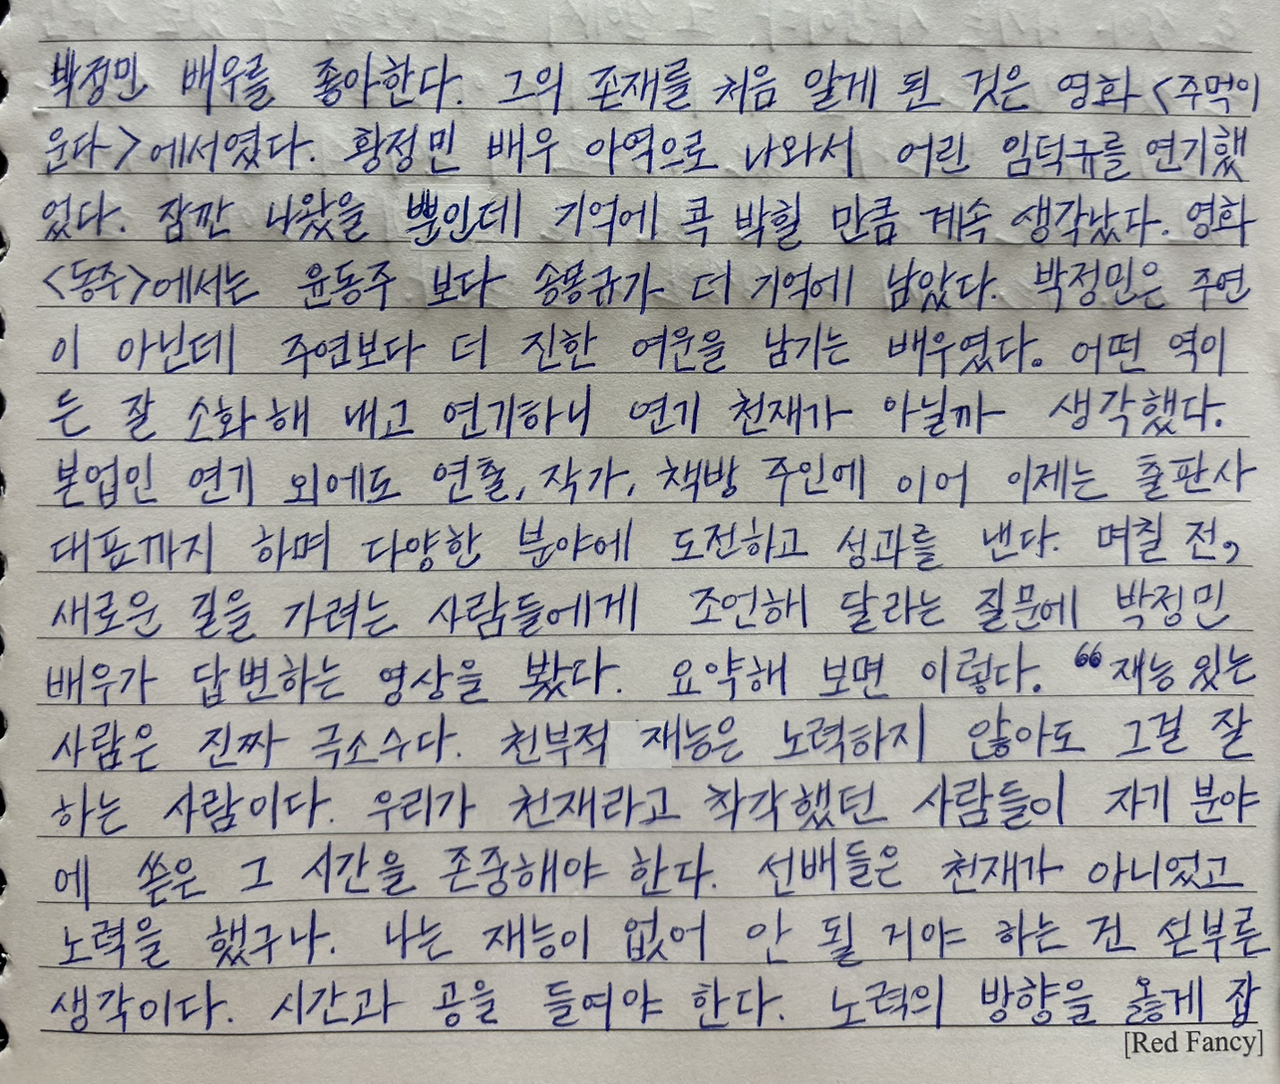 박정민 배우를 좋아한다. 그의 존재를 처음 알게 된 것은 영화 <주먹이
운다>에서였다. 황정민 배우 아역으로 나와서 어린 임덕규를 연기했
었다. 잠깐 나왔을 뿐인데 기억에 콕 박힐 만큼 계속 생각났다. 영화
<동주>에서는 윤동주 보다 송몽규가 더 기억에 남았다. 박정민은 주연
이 아닌데 주연보다 더 진한 여운을 남기는 배우였다. 어떤 역이
든 잘 소화해 내고 연기하니 연기 천재가 아닐까 생각했다.
본업인 연기 외에도 연출, 작가, 책방 주인에 이어 이제는 출판사
대표까지 하며 다양한 분야에 도전하고 성과를 낸다. 며칠 전,
새로운 길을 가려는 사람들에게 조언해 달라는 질문에 박정민
배우가 답변하는 영상을 봤다. 요약해 보면 이렇다. “재능 있는
사람은 진짜 극소수다. 천부적 재능은 노력하지 않아도 그걸 잘
하는 사람이다. 우리가 천재라고 착각했던 사람들이 자기 분야
에 쏟은 그 시간을 존중해야 한다. 선배들은 천재가 아니었고
노력을 했구나. 나는 재능이 없어 안 될 거야 하는 건 섣부른
생각이다. 시간과 공을 들여야 한다. 노력의 방향을 옳게 잡
[Red Fancy]